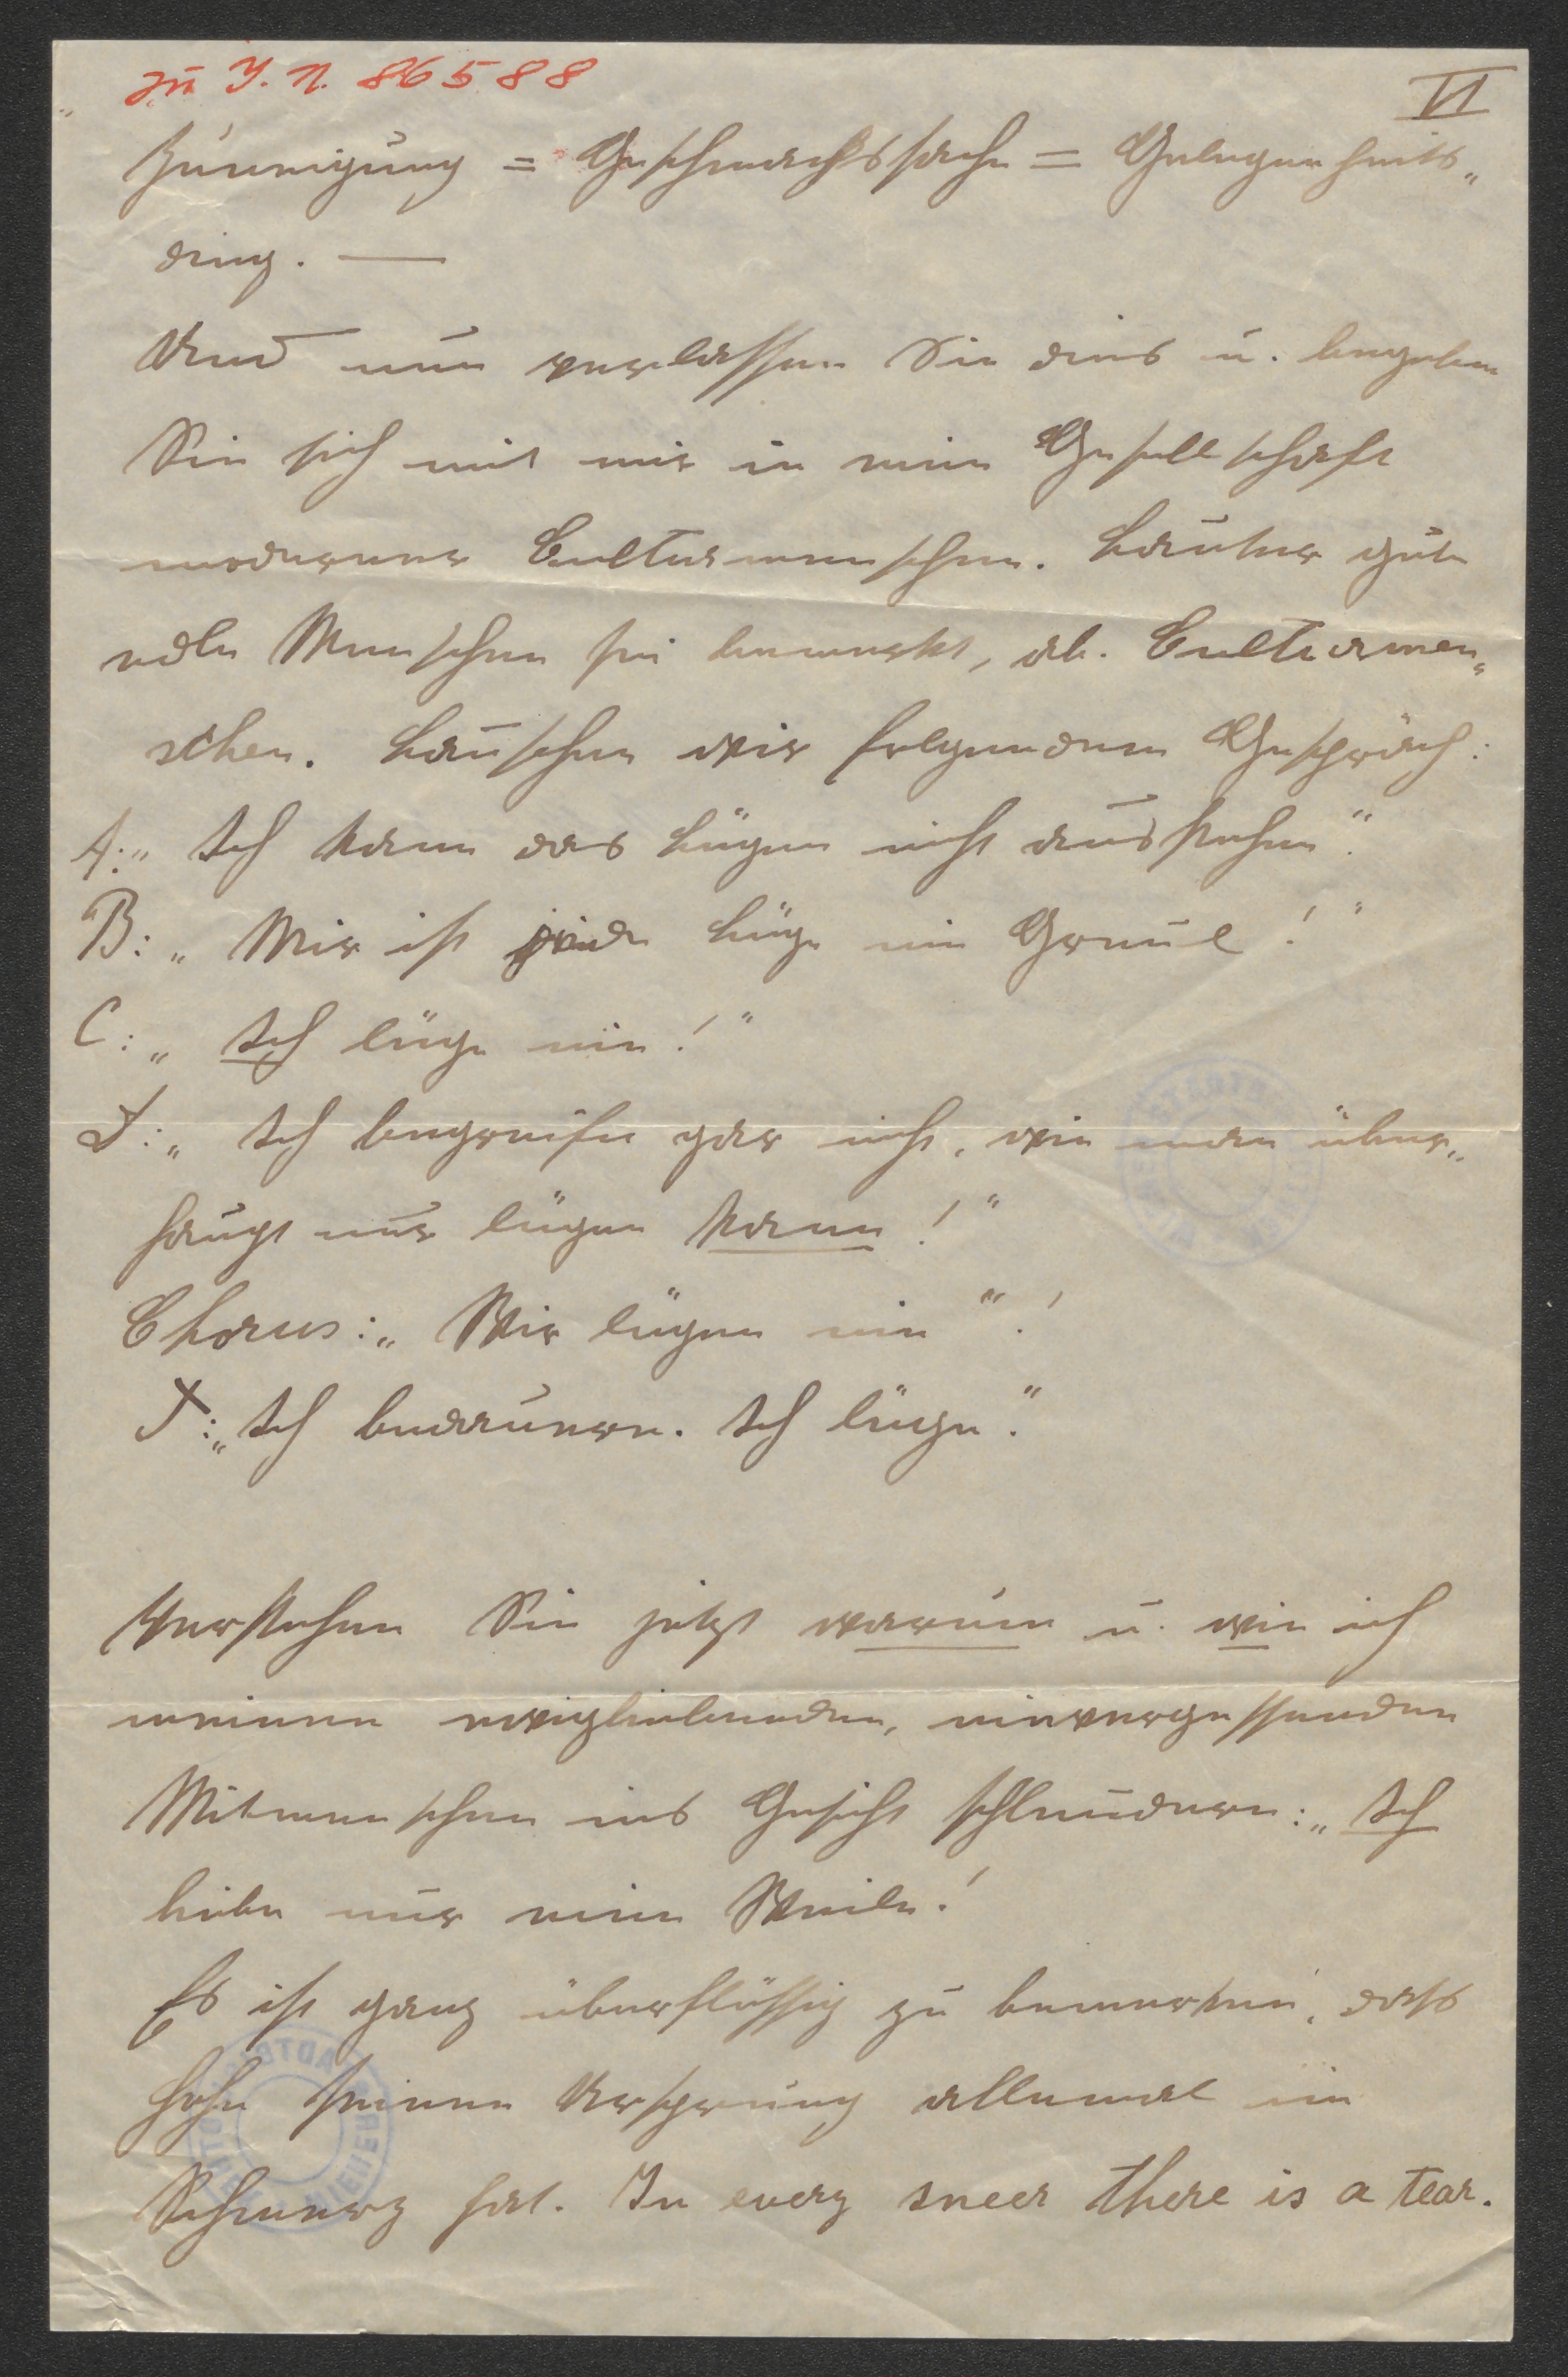 zu I. N. 86588
VI
Zuneigung = Geschmackssache = Gelegenheits„
ding. —
Und nun verlassen Sie dies u. begeben
Sie sich mit mir in eine Gesellschaft
moderner Culturmenschen. Lauter gute
edle Menschen sei bemerkt, ab. Culturmen„
schen. Lauschen wir folgendem Gespräch:
A: „Ich kann das Lügen nicht ausstehen“.
B: „Mir ist jede Lüge ein Greuel!“
C: „Ich lüge nie!“
D: „Ich begreife gar nicht, wie man über„
haupt nur lügen kann!“
Chorus: „Wir lügen nie“!
J: „Ich bedauere. Ich lüge“.
Verstehen Sie jetzt warum u. wie ich
meinen ewigliebenden, nievergessenden
Mitmenschen ins Gesicht schleudere: „Ich
liebe nur eine Weile!
Es ist ganz überflüssig zu bemerken, dass
Hohn seinen Ursprung allemal im
Schmerz hat. In every sneer there is a tear.